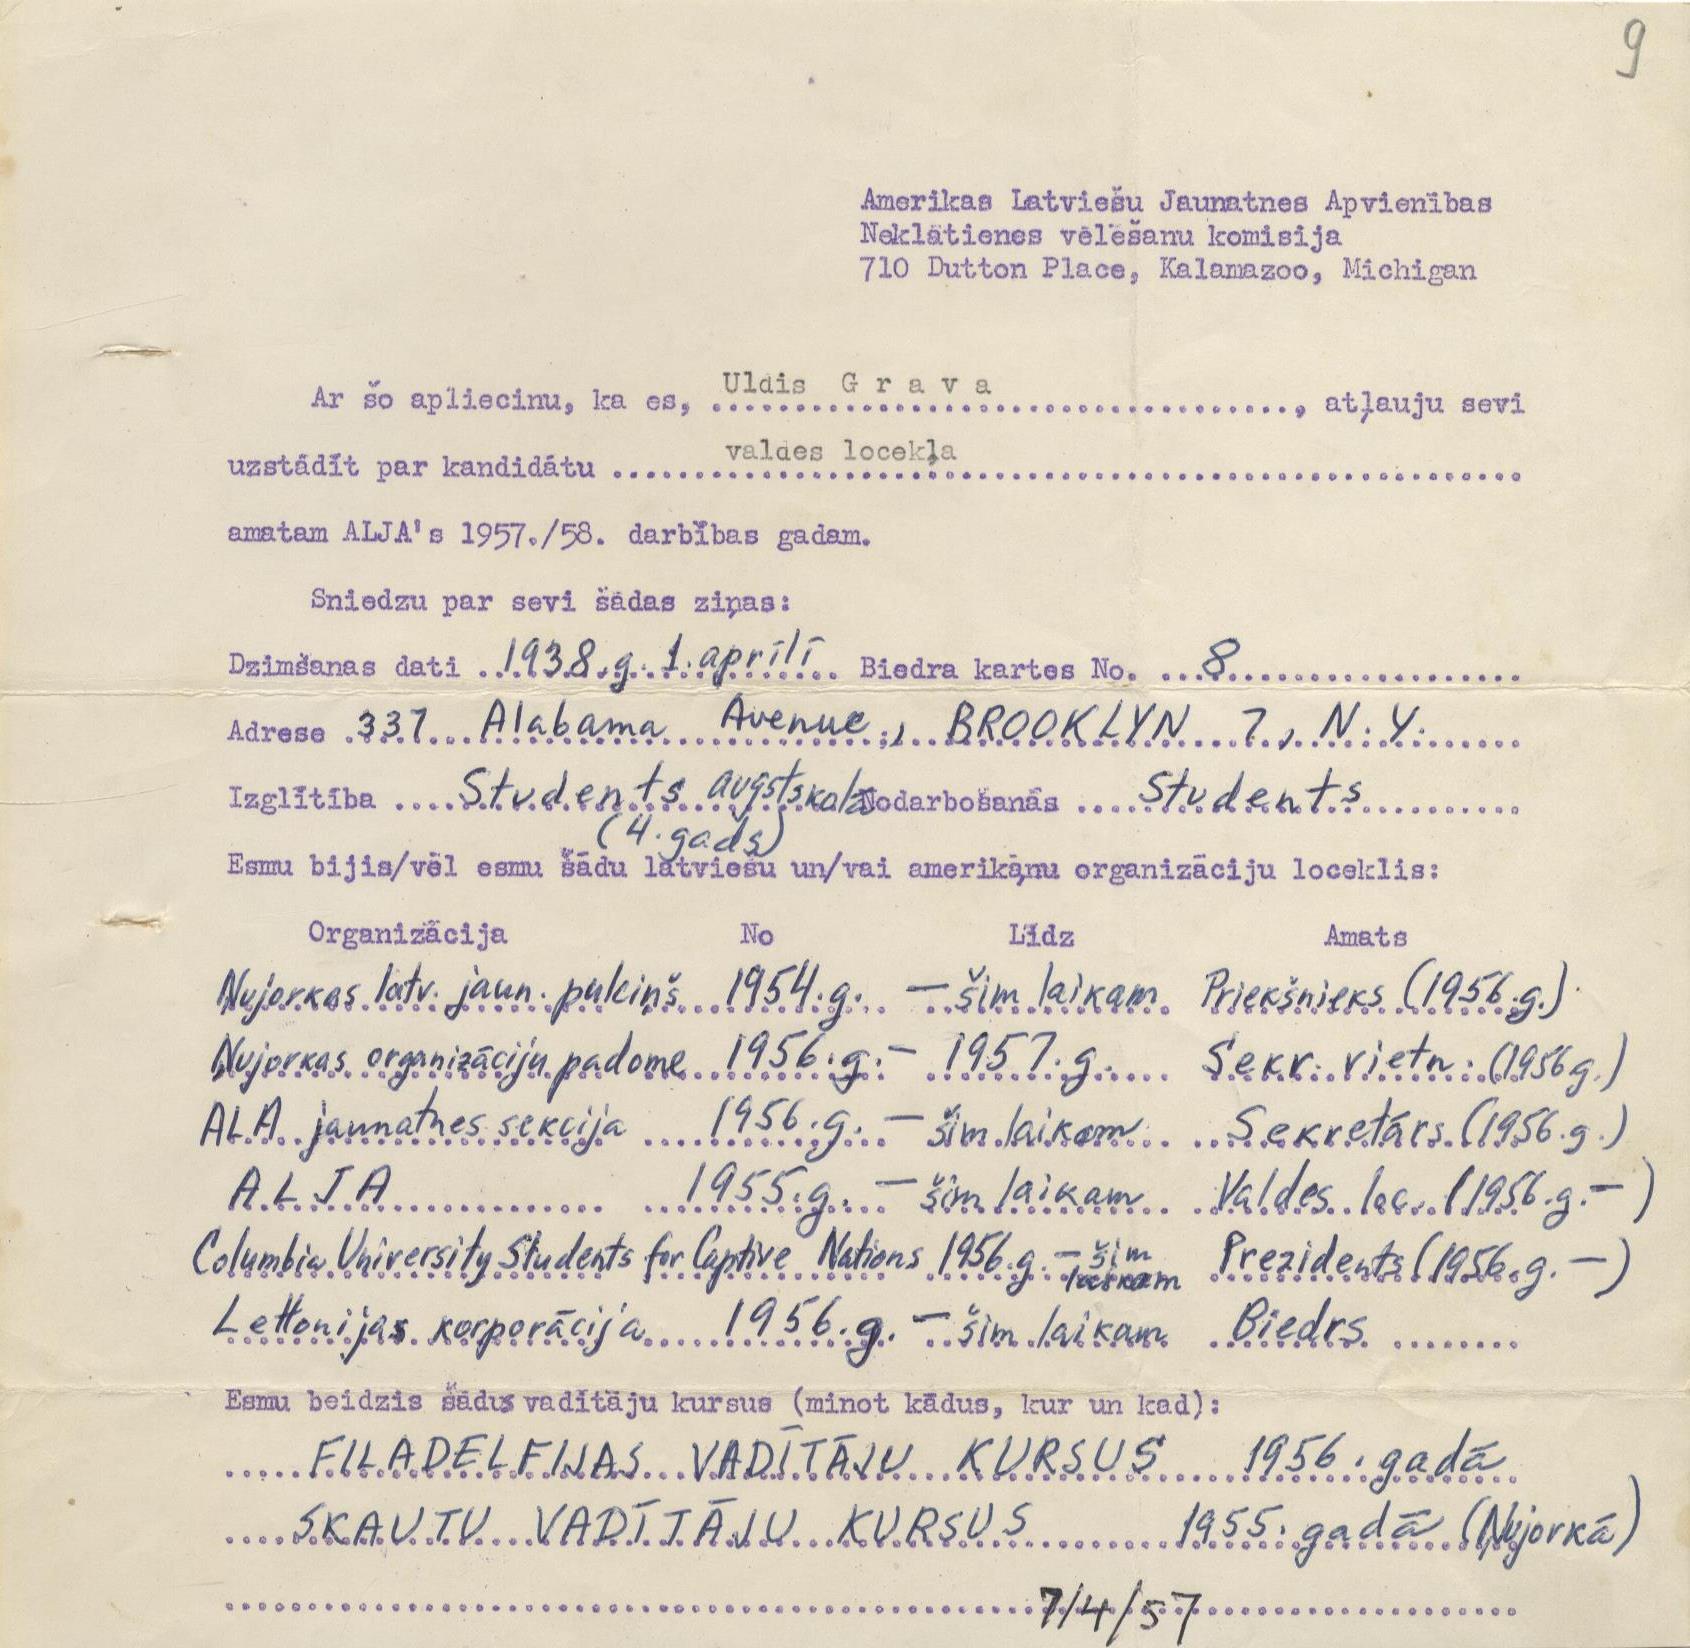 9
Amerikas Latviešu Jaunatnes Apvienības
Neklātienes vēlēšanu komisija
710 Dutton Place, Kalamazoo, Michigan
Ar šo apliecinu, ka es, Uldis G r a v a, atļauju sevi
uzstādīt par kandidātu valdes locekļa
amatam ALJA's 1957./58. darbības gadam.
Sniedzu par sevi šādas ziņas:
Dzimšanas dati 1938.g. 1. aprīlī Biedra kartes No. 8
Adrese 337 Alabama Avenue, BROOKLYN 7, N.Y.
Izglītība Students augstskolā Nodarbošanās Students
(4. gads)
Esmu bijis/vēl esmu šādu latviešu un/vai amerikāņu organizāciju loceklis:
Organizācija No Līdz Amats
Ņujorkas latv. jaun. pulciņš 1954.g. — šim laikam Priekšnieks (1956.g.)
Ņujorkas organizāciju padome 1956.g. — 1957.g. Sekr. vietn. (1956g.)
ALA jaunatnes sekcija 1956.g. — šim laikam Sekretārs (1956.g.)
ALJA 1955.g. — šim laikam Valdes loc. (1956.g. —)
Columbia University Students for Captive Nations 1956.g. — šim laikam Prezidents (1956.g. —)
Lettonijas korporācija 1956.g. — šim laikam Biedrs
Esmu beidzis šādus vadītāju kursus (minot kādus, kur un kad):
FILADELFIJAS VADĪTĀJU KURSUS 1956. gadā
SKAUTU VADĪTĀJU KURSUS 1955. gadā (Ņujorkā)
7/4/57